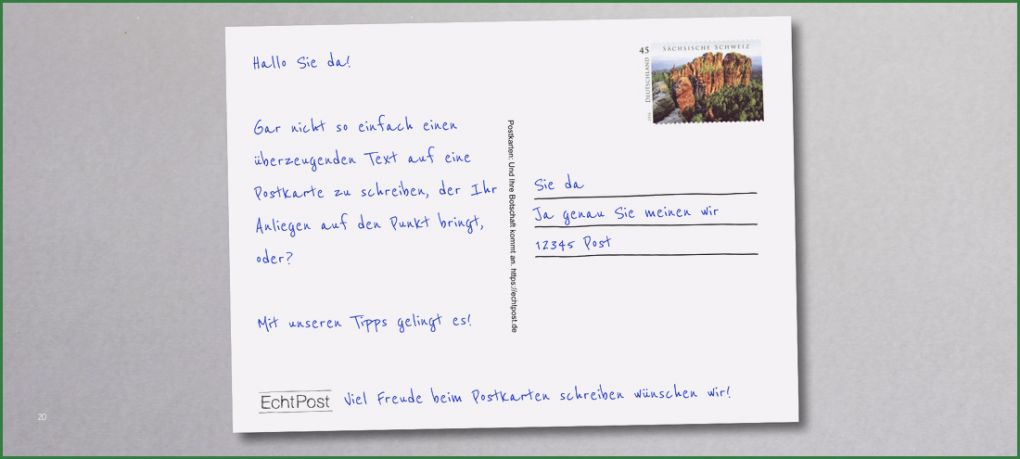 Hallo Sie da!
Gar nicht so einfach einen
überzeugenden Text auf eine
Postkarte zu schreiben, der Ihr
Anliegen auf den Punkt bringt,
oder?
Mit unseren Tipps gelingt es!
EchtPost Viel Freude beim Postkarten schreiben wünschen wir!
Postkarten: Und Ihre Botschaft kommt an. https://echtpost.de
45
SÄCHSISCHE SCHWEIZ
DEUTSCHLAND
Sie da
Ja genau Sie meinen wir
12345 Post
20